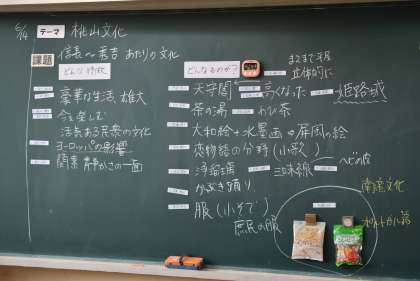 6/14 テーマ 桃山文化
課題 信長〜秀吉 あたりの文化
どんな特徴
豪華な生活 雄大
今を楽しむ
活気ある民衆の文化
ヨーロッパの影響
簡素 静かさの一面
どんなものが?
まるまで平屋
立体的に
天守閣 高くなった 姫路城
茶の湯 わび茶
大和絵+水墨画⇒屏風の絵
恋物語の分野(小歌)
浄瑠璃 三味線 ヘビの皮
かぶき踊り
服(小そで)
庶民の服
南蛮文化